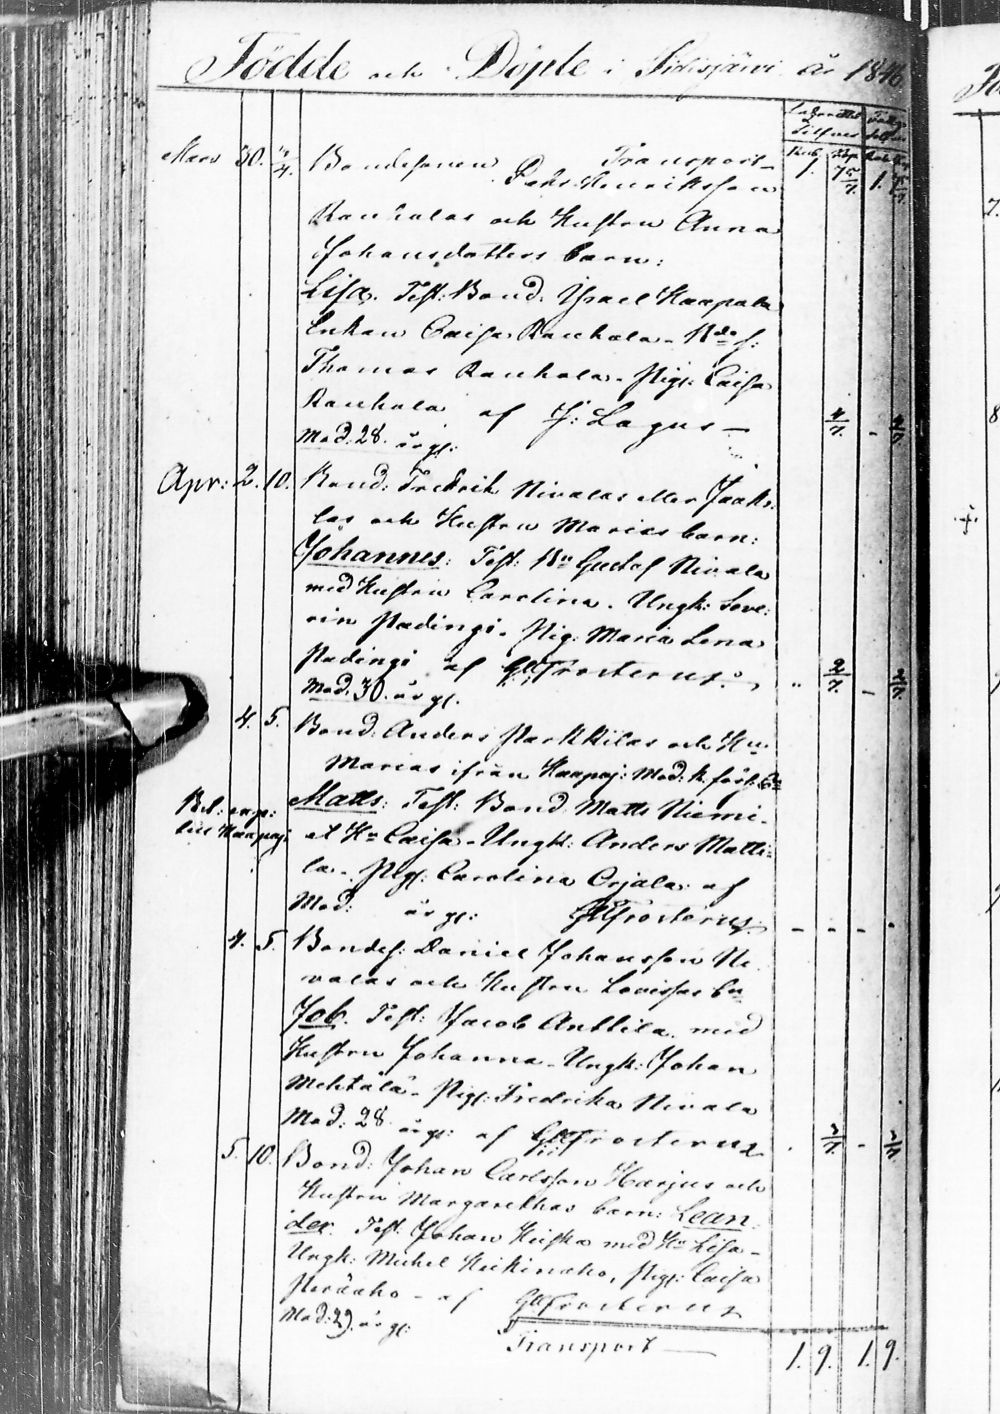 Födde och Döpte i Sidisjärvi År 1846
Transport 1. 75/7. 1. 75/7.
Mars 30. 4/4. Bondesonen Pehr Henriksson
Rauhalas och Hustru Anna
Johansdotters barn:
Lisa. Test: Bond: Israel Haapala
Enkan Caisa Rauhala. Bde s:
Thomas Rauhala. Pig: Caisa
Rauhala af J: Lagus — 4/7. - 4/7.
Mod: 28. årg:
Apr: 2. 10. Bond: Fredrik Nivalas eller Jaako
las och Hustru Marias barn:
Johannes: Test: Bn Gustaf Nivala
med Hustru Carolina. Ungk: Seve:
rin Padingi. Pig: Maria Lena
Padingi af Frosterus. „ 2/7. - 2/7.
Mod: 30. årg.
4. 5. Bond: Anders Parkkilas och Hu
Marias ifrån Haapaj: Mod: k. förs:
Bet: anm:
till Haapaj:
Matts: Test: Bond Matts Niemi.
et Hu Caisa. Ungk: Anders Matti:
la. Pig: Carolina Orjala: af
Mod: årg: Frosterus - - - .
4. 5. Bondes: Daniel Johansson Ni
valas och Hustru Lovisas bn
Job. Test: Jacob Anttila. med
Hustru Johanna. Ungk: Johan
Mehtälä. Pig: Fredrika Nivala
Mod: 28 årg: af Frosterus . 2/7. - 2/7.
5. 10. Bond: Johan Carlsson Harjus och
Hustru Margarethas barn: Lean:
der. Test. Johan Kiiska med Hu Lisa.
Ungk: Michel Heikinaho, Pig: Caisa
Peräaho - af Frosterus
Mod: 29. årg:
Transport — 1. 9. 1. 9.